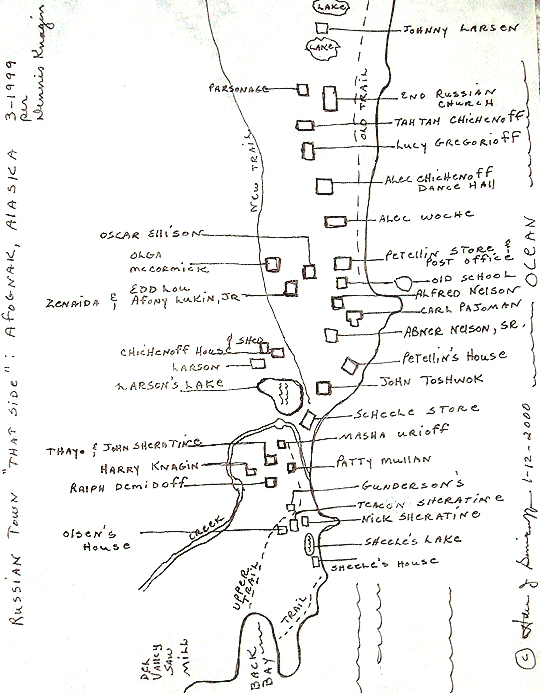 RUSSIAN TOWN "THAT SIDE": AFOGNAK, ALASKA 3-1999
per
Dennis Knagin
LAKE
JOHNNY LARSEN
LAKE
PARSONAGE
2ND RUSSIAN
CHURCH
OLD TRAIL
TAHTAH CHICHENOFF
LUCY GREGORIOFF
NEW TRAIL
ALEC CHICHENOFF
DANCE HALL
ALEC WOCHE
OSCAR ELLISON
OLGA
MCCORMICK
PETELLIN STORE &
POST OFFICE
OLD SCHOOL
EDD LOU
ZENAIDA & AFONY LUKIN, JR
ALFRED NELSON
CARL PAJOMAN
OCEAN
ABNER NELSON, SR.
CHICHENOFF HOUSE & SHED
LARSON
PETELLIN'S HOUSE
LARSON'S LAKE
JOHN TOSHWOK
SCHEELE STORE
MASHA URIOFF
THAYO & JOHN SHERATINE
HARRY KNAGIN
PATTY MULLAN
RALPH DEMIDOFF
GUNDERSON'S
TEACON SHERATINE
NICK SHERATINE
OLSEN'S
HOUSE
CREEK
SHEELE'S LAKE
SHEELE'S HOUSE
UPPER
TRAIL
TRAIL
BACK
BAY
VALLEY
SAW
MILL
© 1-12-2000